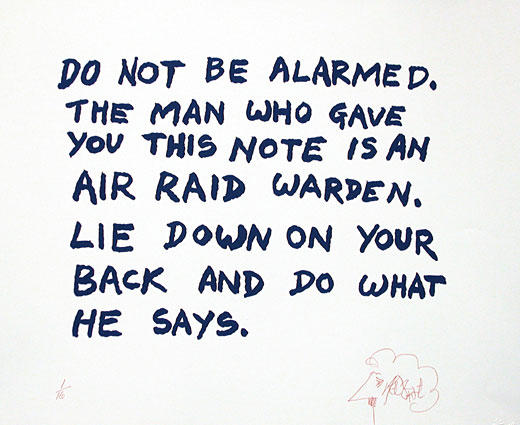 DO NOT BE ALARMED.
THE MAN WHO GAVE
YOU THIS NOTE IS AN
AIR RAID WARDEN.
LIE DOWN ON YOUR
BACK AND DO WHAT
HE SAYS.